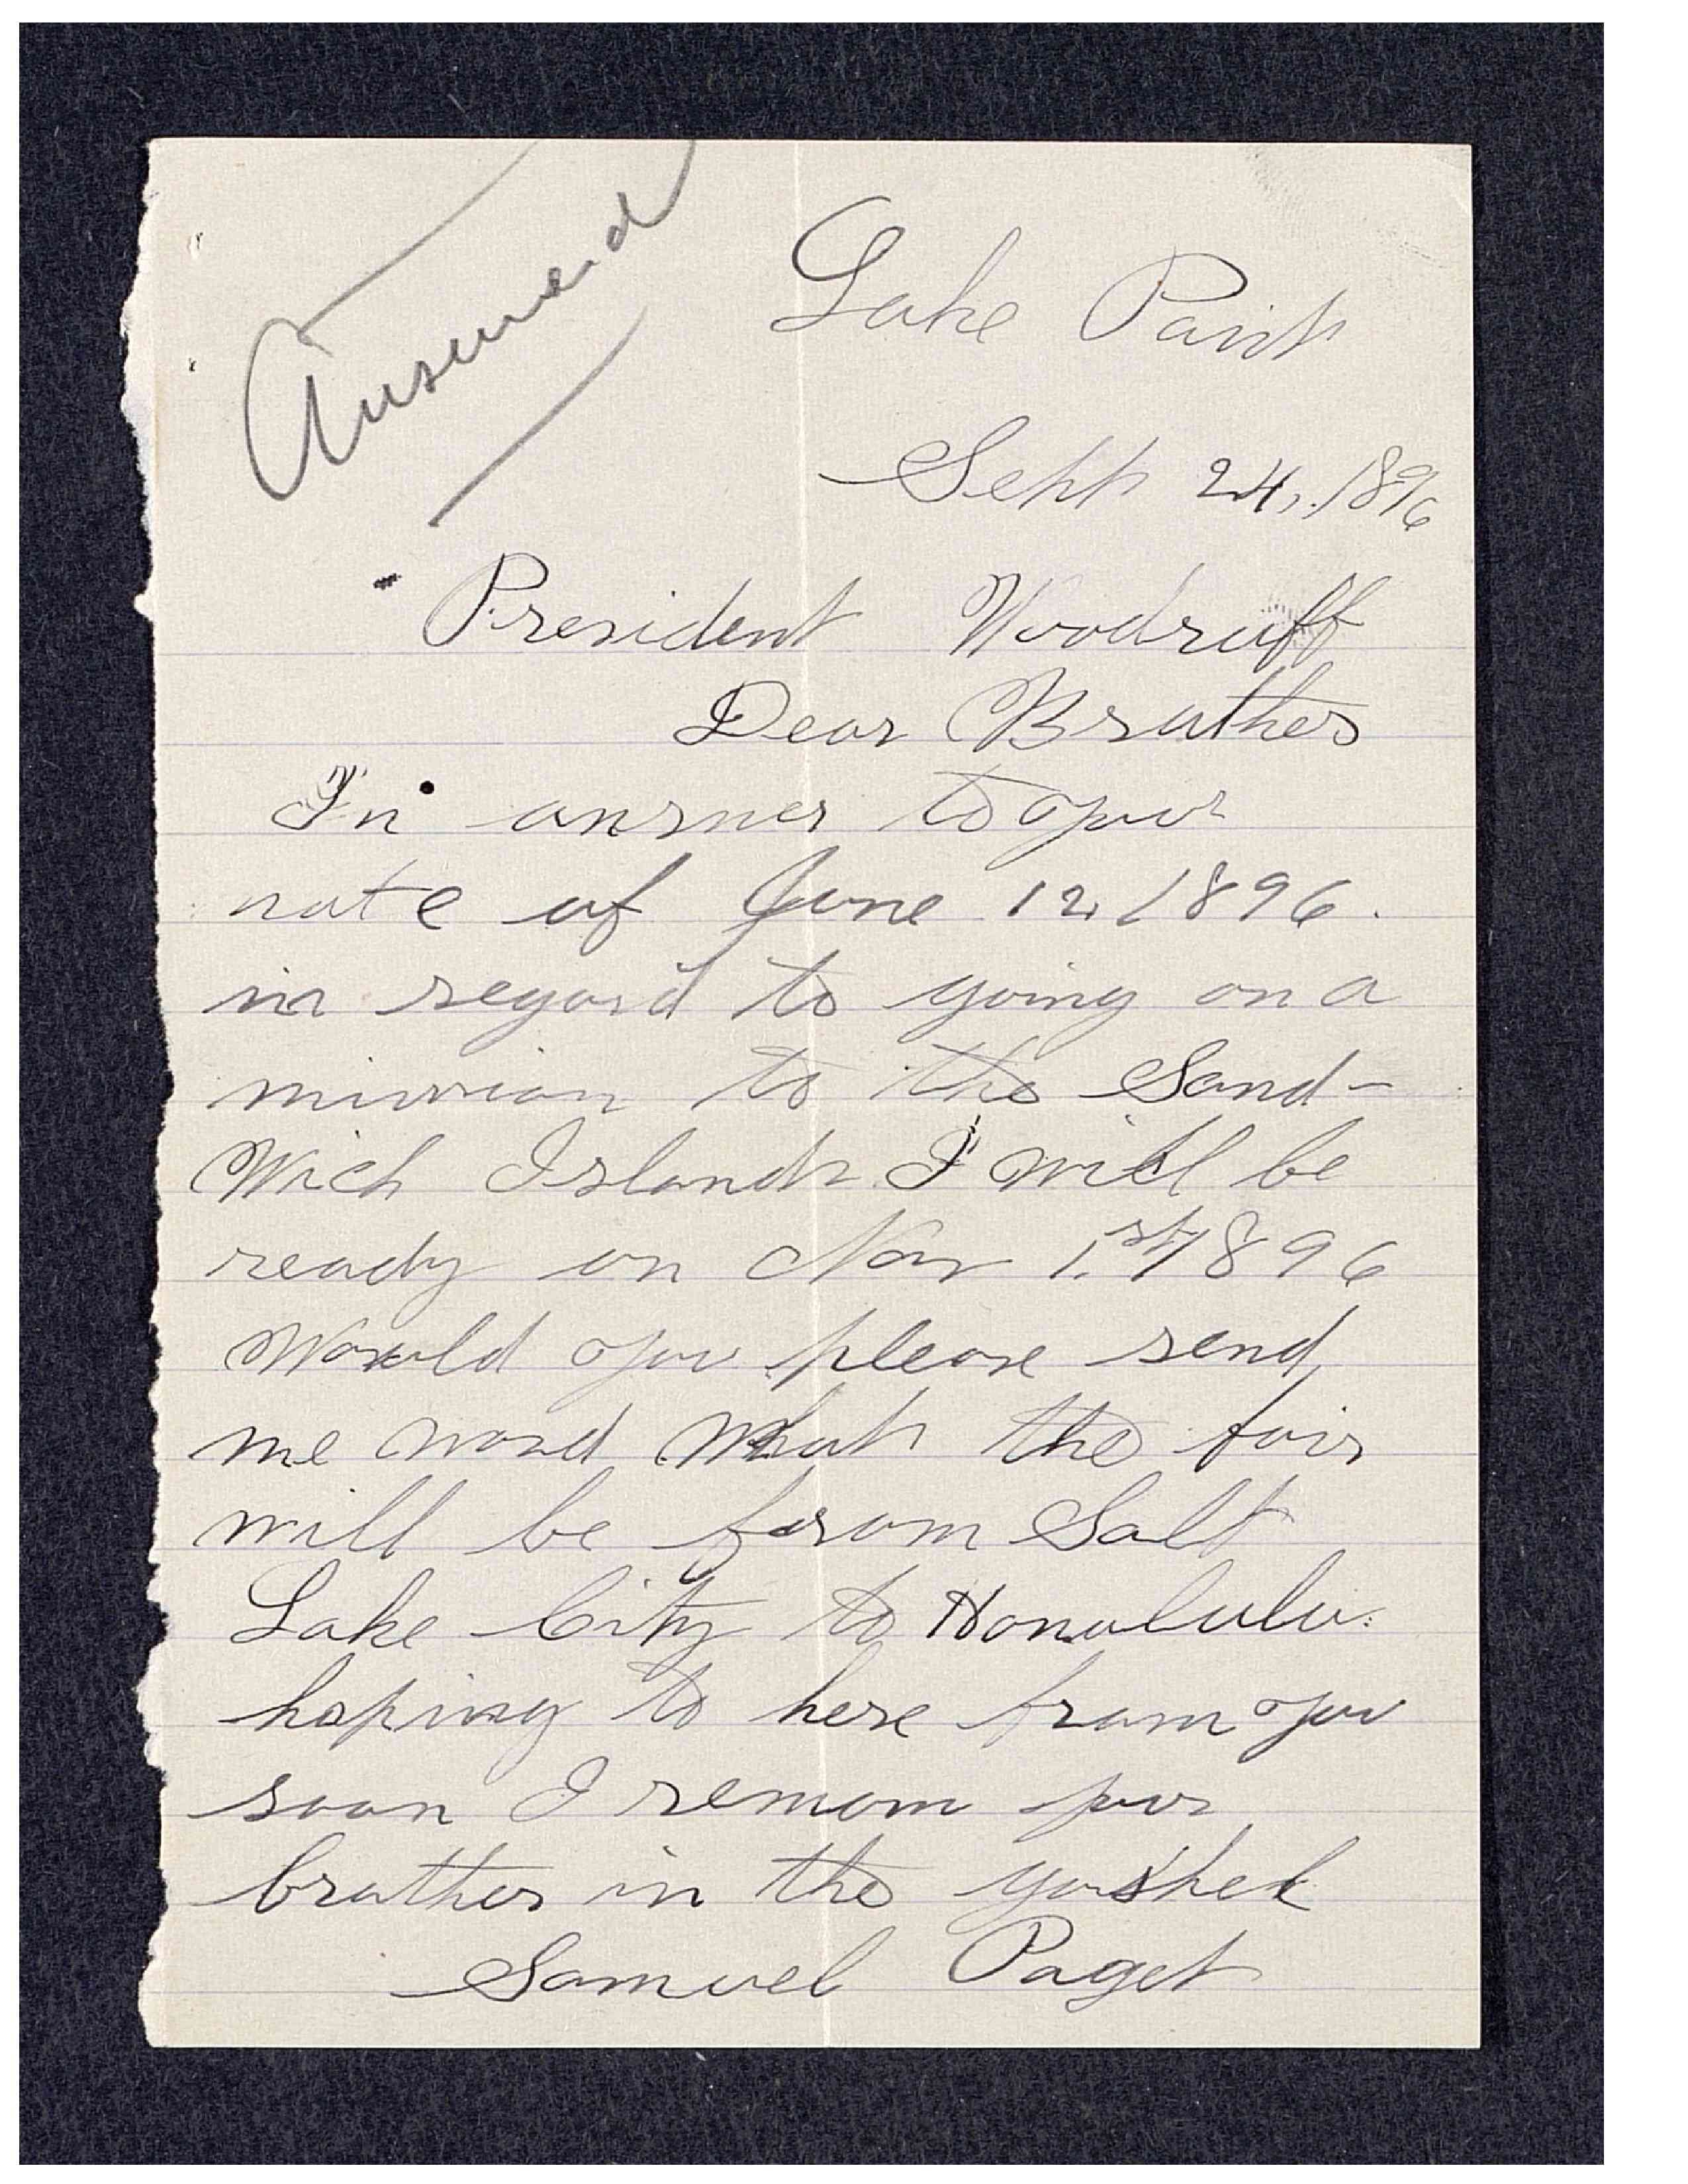 Answered
Lake Point
Sept 24, 1896
President Woodruff
Dear Brother
In answer to your
note of June 12, 1896.
in regard to going on a
mission to the Sand-
Wich Islands I will be
ready on Nov 1.st 1896
Would you please send
me word what the fair
will be from Salt
Lake City to Honolulu.
hoping to here from you
soon I remain your
brother in the goshel
Samuel Paget